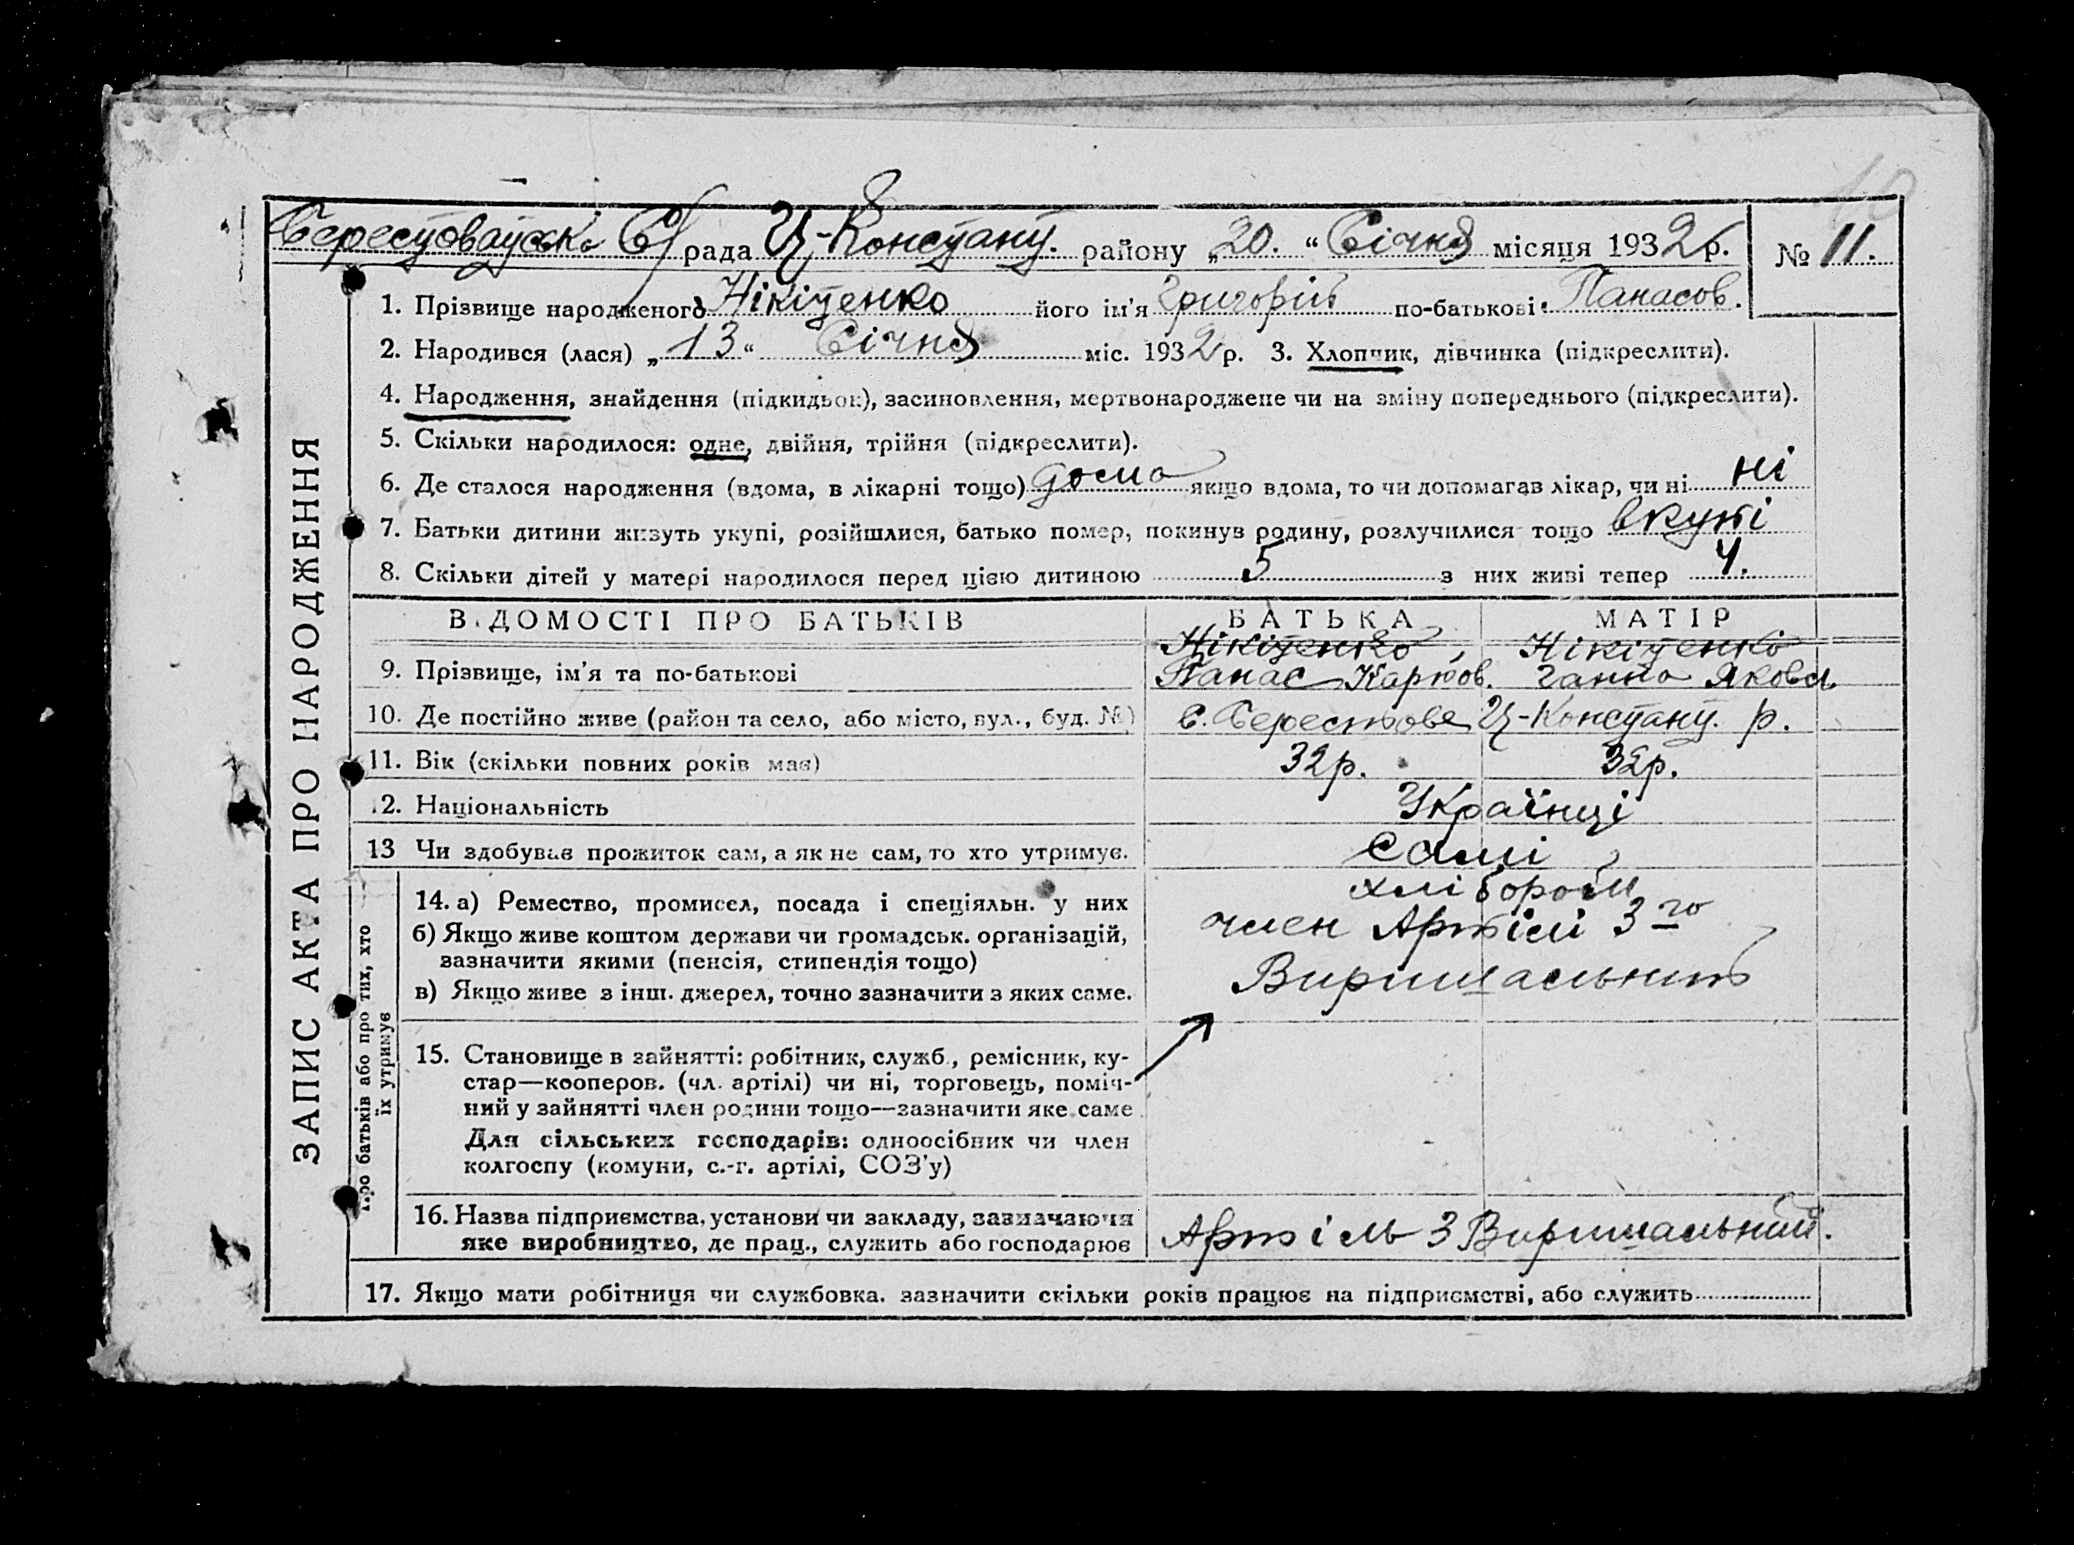 Берестоватська С/рада Ц-Констант. району „20.“ Січня місяця 1932 р. № 11.
1. Прізвище народженого Нікітенко його ім'я Григорій по-батькові Панасов.
2. Народився (лася) „13“ Січня міс. 1932 р. 3. Хлопчик, дівчинка (підкреслити).
4. Народження, знайдення (підкидьок), засиновлення, мертвонароджене чи на зміну попереднього (підкреслити).
5. Скільки народилося: одне, двійня, трійня (підкреслити).
6. Де сталося народження (вдома, в лікарні тощо) дома якщо вдома, то чи допомагав лікар, чи ні ні
7. Батьки дитини живуть укупі, розійшлися, батько помер, покинув родину, розлучилися тощо вкупі
8. Скільки дітей у матері народилося перед цією дитиною 5 з них живі тепер 4.
ВІДОМОСТІ ПРО БАТЬКІВ БАТЬКА МАТІР
Нікітенко, Нікітенко
9. Прізвище, ім'я та по-батькові Панас Карпов. Ганна Яковл
10. Де постійно живе (район та село, або місто, вул., буд. №) С. Берестове Ц-Констант. р.
11. Вік (скільки повних років має) 32р. 32р.
12. Національність Українці
13 Чи здобував прожиток сам, а як не сам, то хто утримує. Самі
14. а) Ремество, промисел, посада і спеціяльн. у них хлібороби
б) Якщо живе коштом держави чи громадськ. організацій, член Артілі 3го
зазначити якими (пенсія, стипендія тощо)
в) Якщо живе з інш. джерел, точно зазначити з яких саме. Вирішальний
15. Становище в зайнятті: робітник, служб., ремісник, ку-
стар—кооперов. (чл. артілі) чи ні, торговець, поміч-
ний у зайнятті член родини тощо—зазначити яке саме
Для сільських господарів: одноосібник чи член
колгоспу (комуни, с.-г. артілі, СОЗ'у)
16. Назва підприємства, установи чи закладу, зазначаючи
яке виробництво, де прац., служить або господарює Артіль 3 Вирішальний.
17. Якщо мати робітниця чи службовка. зазначити скільки років працює на підприємстві, або служить
ЗАПИС АКТА ПРО НАРОДЖЕННЯ
Про батьків або про тих, хто
їх утримує
10